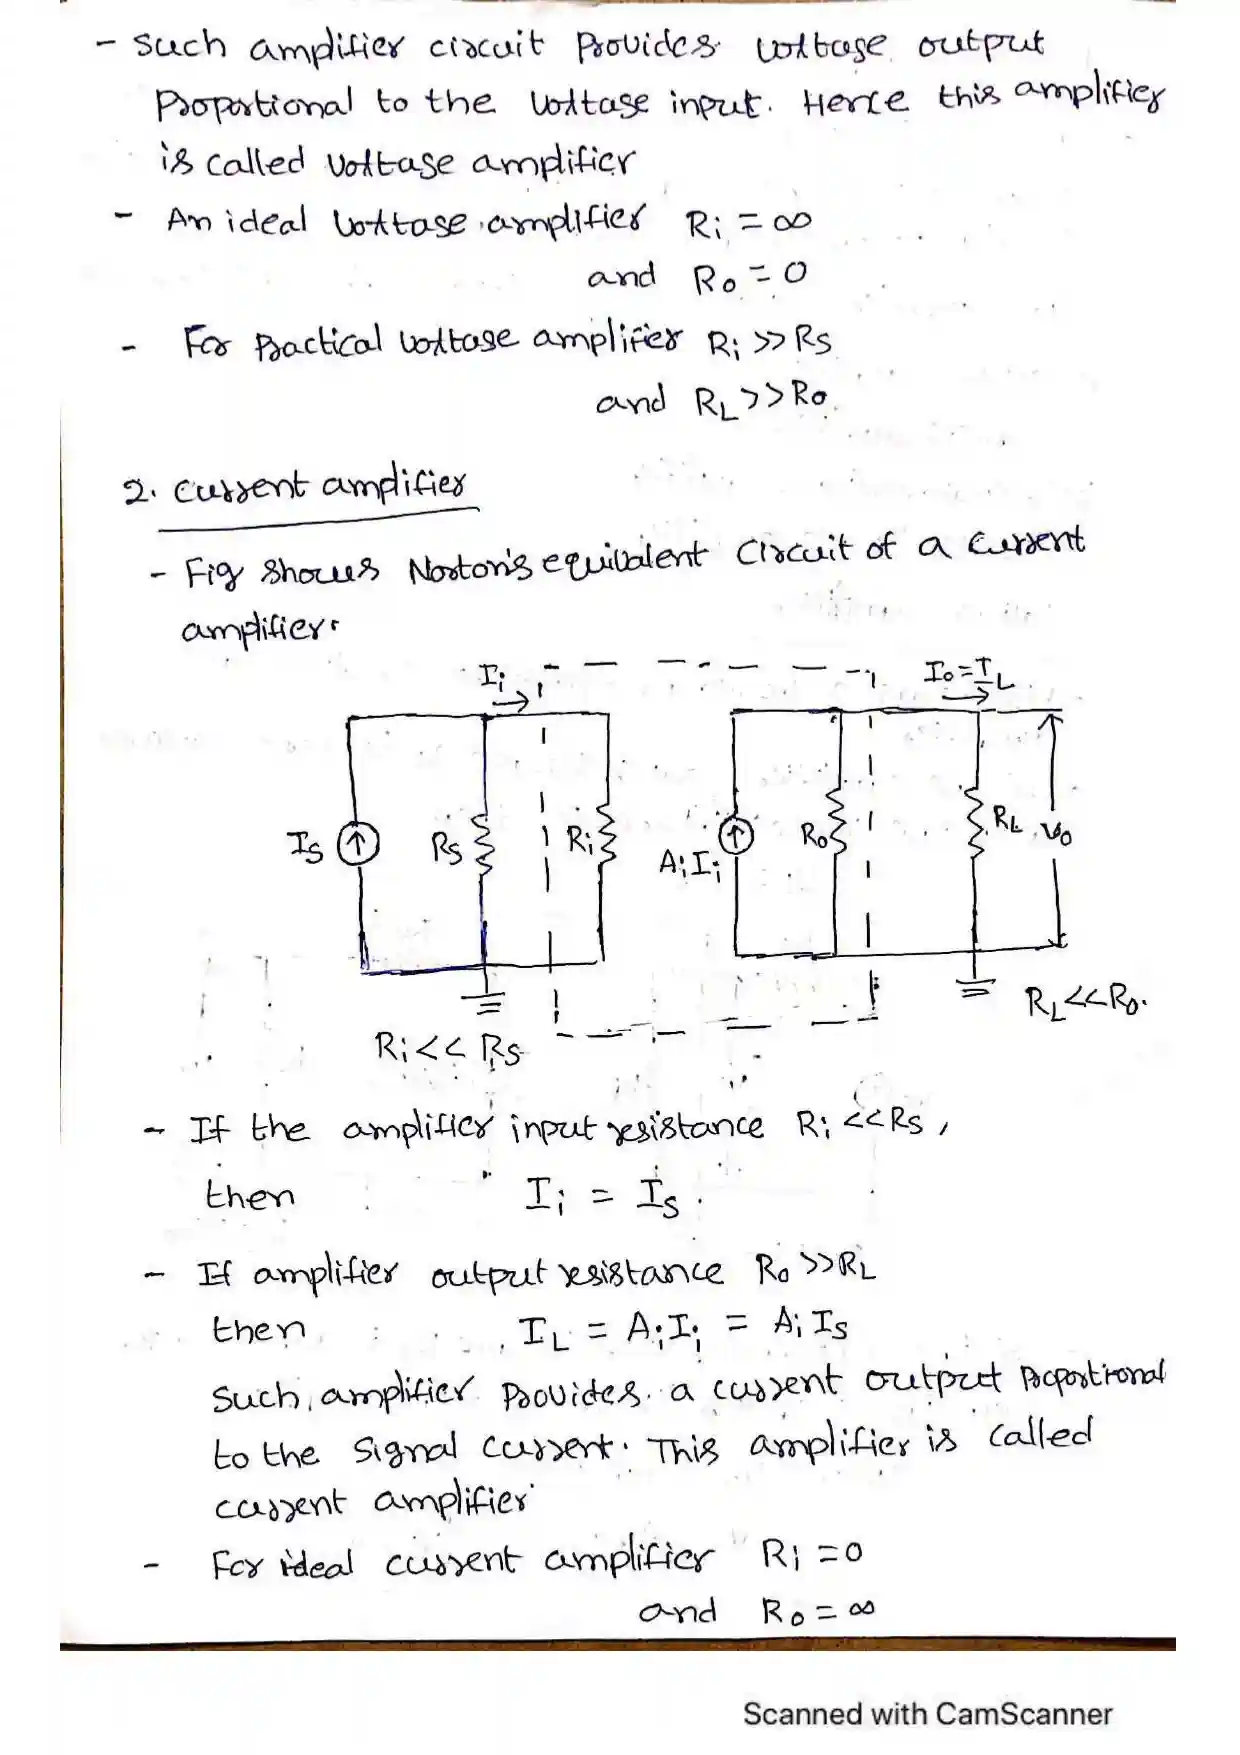 - Such amplifier circuit Provides voltage output
Proportional to the Voltage input. Hence this amplifier
is called Voltage amplifier
- An ideal Voltage amplifier Ri = ∞
and Ro = 0
- For Practical voltage amplifier Ri >> Rs
and RL >> Ro
2. Current amplifier
- Fig Shows Norton's equivalent Circuit of a Current
amplifier.
Ii
Io = IL
Is
Rs
Ri
AiIi
Ro
RL
Vo
RL << Ro.
Ri << Rs
- If the amplifier input resistance Ri << Rs,
then Ii = Is.
- If amplifier output resistance Ro >> RL
then IL = AiIi = AiIs
Such amplifier Provides a current output Proportional
to the Signal current. This amplifier is called
current amplifier
- For ideal current amplifier Ri = 0
and Ro = ∞
Scanned with CamScanner